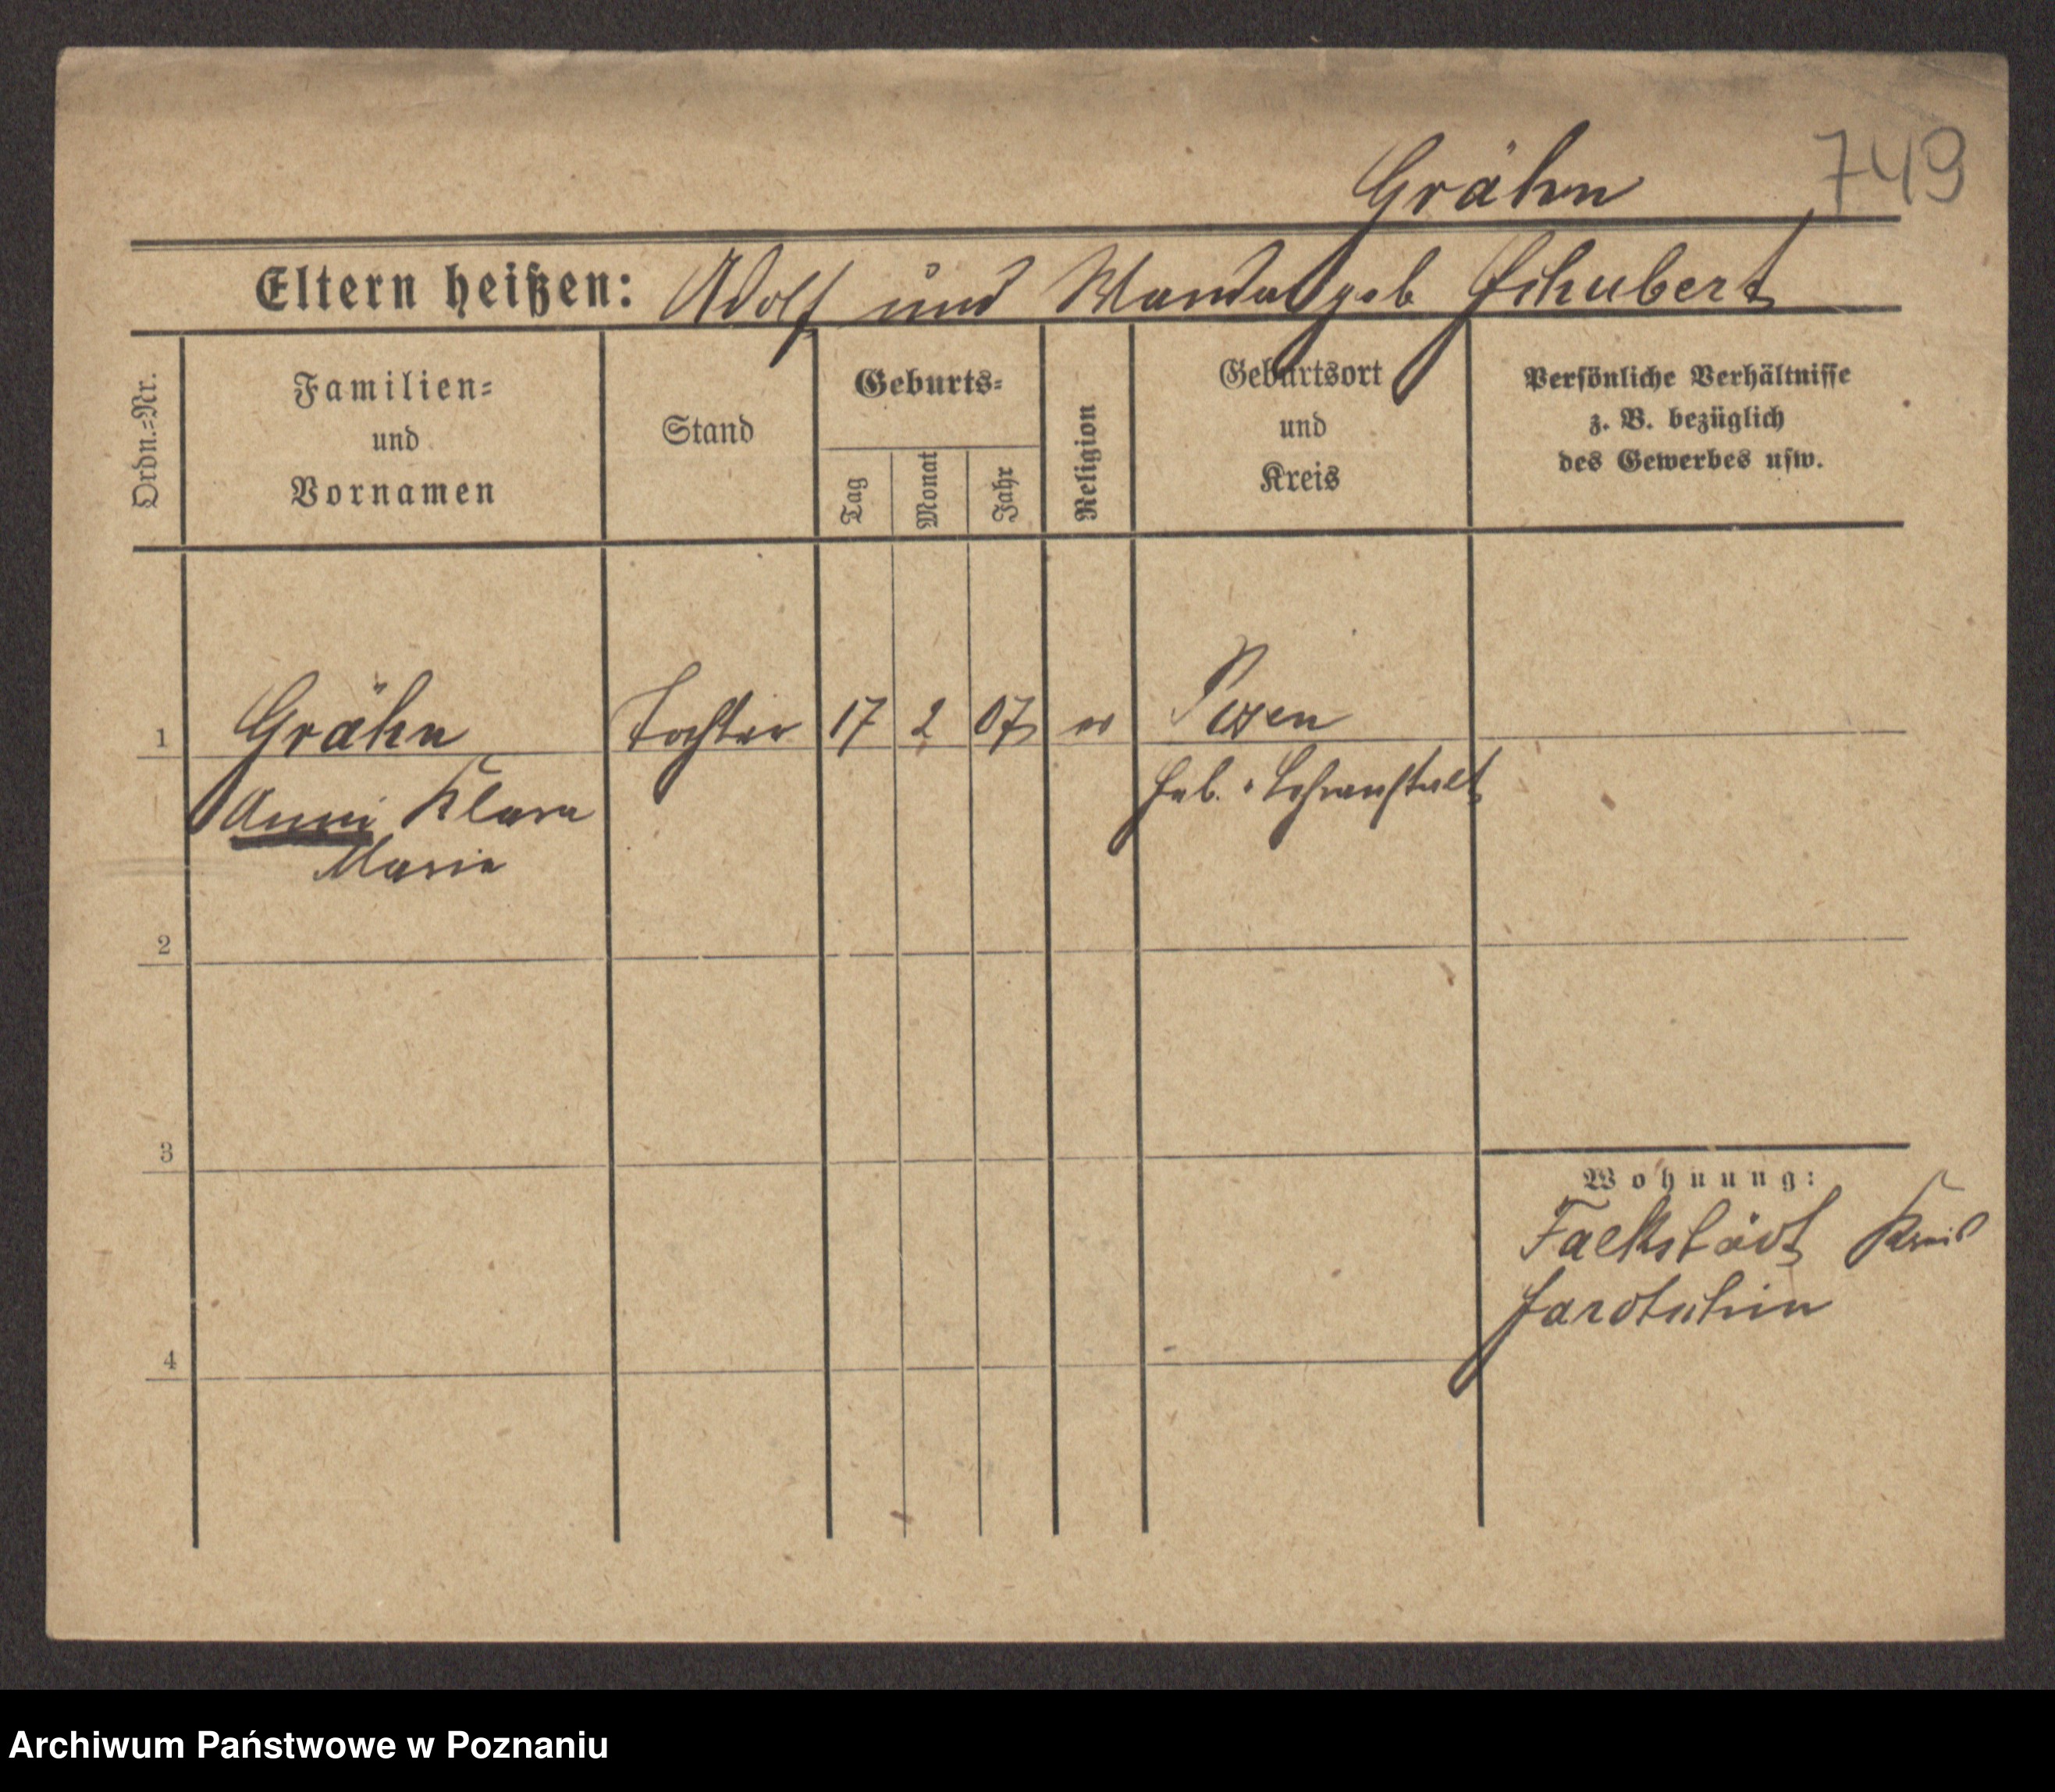 749
Grähn
Eltern heißen: Adolf und Wanda geb Schubert
Ordn.=Nr.
Familien=
und
Vornamen
Stand
Geburts=
Tag
Monat
Jahr
Religion
Geburtsort
und
Kreis
Persönliche Verhältnisse
z. B. bezüglich
des Gewerbes usw.
1 Grähn Tochter 17 2 07 ev Posen
Anni Klara Heb. Lehranstalt
Marie
2
3
Wohnung:
Falkstädt Kreis
Jarotschin
4
Archiwum Państwowe w Poznaniu